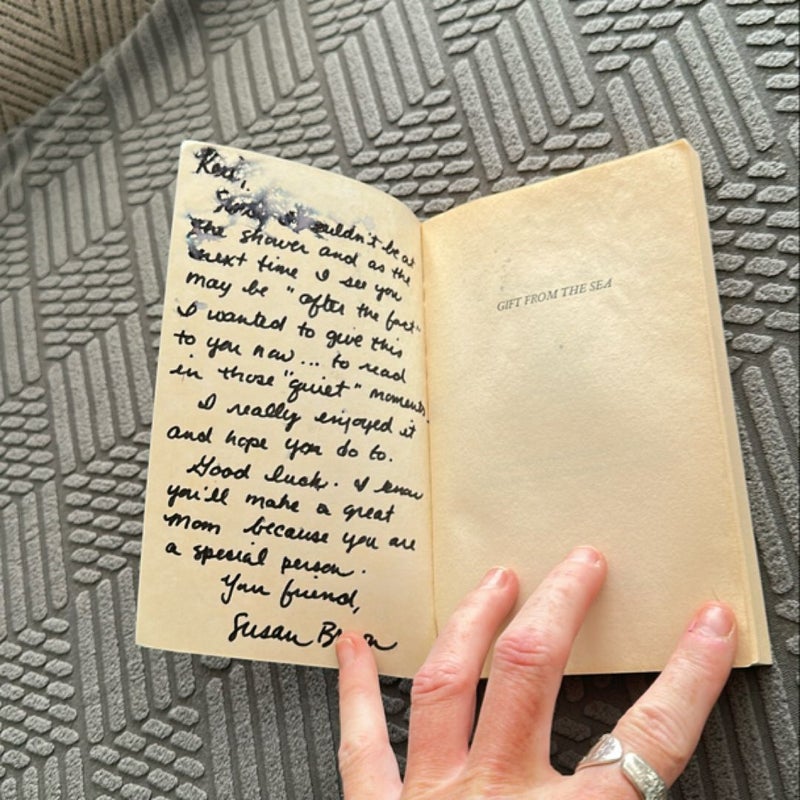 Keri,
Sorry I couldn't be at
the shower and as the
next time I see you
may be "after the fact"
I wanted to give this
to you now... to read
in those "quiet" moments.
I really enjoyed it
and hope you do to.
Good luck. I know
you'll make a great
mom because you are
a special person.
Your friend,
Susan
GIFT FROM THE SEA